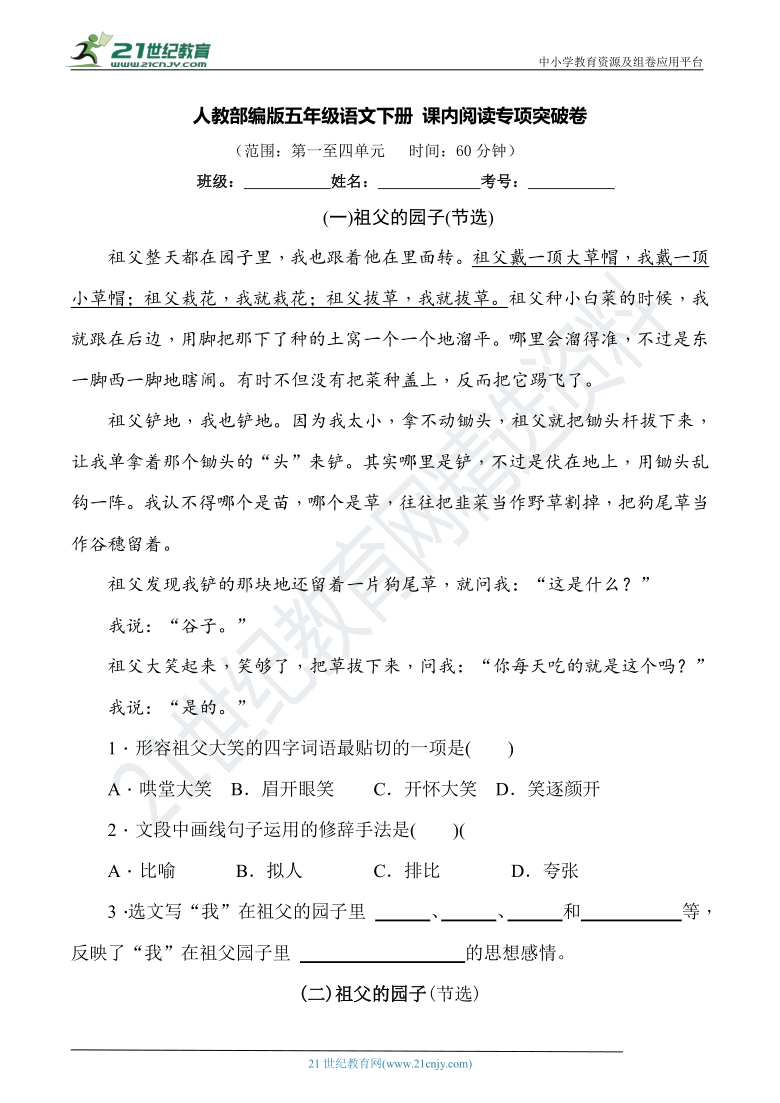 21世纪教育
WWW.21CNJY.COM
中小学教育资源及组卷应用平台
人教部编版五年级语文下册 课内阅读专项突破卷
（范围：第一至四单元 时间：60分钟）
班级：姓名：考号：
(一)祖父的园子(节选)
祖父整天都在园子里，我也跟着他在里面转。祖父戴一顶大草帽，我戴一顶
小草帽；祖父栽花，我就栽花；祖父拔草，我就拔草。祖父种小白菜的时候，我
就跟在后边，用脚把那下了种的土窝一个一个地溜平。哪里会溜得准，不过是东
一脚西一脚地瞎闹。有时不但没有把菜种盖上，反而把它踢飞了。
祖父铲地，我也铲地。因为我太小，拿不动锄头，祖父就把锄头杆拔下来，
让我单拿着那个锄头的“头”来铲。其实哪里是铲，不过是伏在地上，用锄头乱
钩一阵。我认不得哪个是苗，哪个是草，往往把韭菜当作野草割掉，把狗尾草当
作谷穗留着。
祖父发现我铲的那块地还留着一片狗尾草，就问我：“这是什么？”
我说：“谷子。”
祖父大笑起来，笑够了，把草拔下来，问我：“你每天吃的就是这个吗？”
我说：“是的。”
1．形容祖父大笑的四字词语最贴切的一项是( )
A．哄堂大笑 B．眉开眼笑 C．开怀大笑 D．笑逐颜开
2．文段中画线句子运用的修辞手法是( )(
A．比喻 B．拟人 C．排比 D．夸张
3．选文写“我”在祖父的园子里 、 、 和 等，
反映了“我”在祖父园子里 的思想感情。
(二)祖父的园子(节选)
21世纪教育网精选资料
21 世纪教育网(www.21cnjy.com)